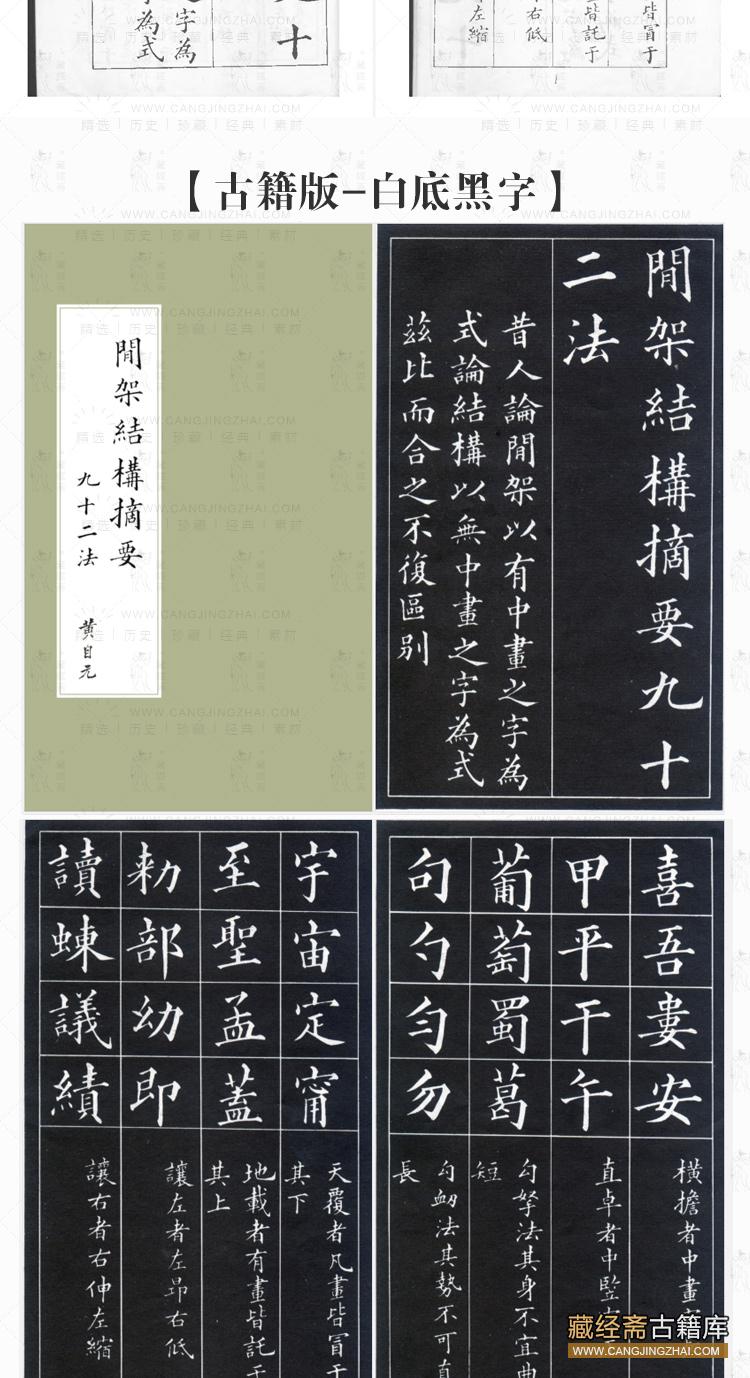 字為
為式
十
皆冒于
皆託于
右低
左縮
【古籍版-白底黑字】
閒架結構摘要
九十二法
黄自元
閒架結構摘要九十
二法
昔人論閒架以有中畫之字為
式論結構以無中畫之字為式
茲比而合之不復區别
宇宙定甯
天覆者凡畫皆冒于
其下
至聖孟蓋
地載者有畫皆託于
其上
勑部幼即
讓左者左昂右低
讀蝀議績
讓右者右伸左縮
喜吾婁安
橫擔者中畫
甲平干午
直卓者中竪
葡萄蜀葛
勾拏法其身不宜曲
短
句勺勻勿
勾衂法其勢不可直
長
藏经斋古籍库
WWW.CANGJINGZHAI.COM
精选 | 历史 | 珍藏 | 经典 | 素材